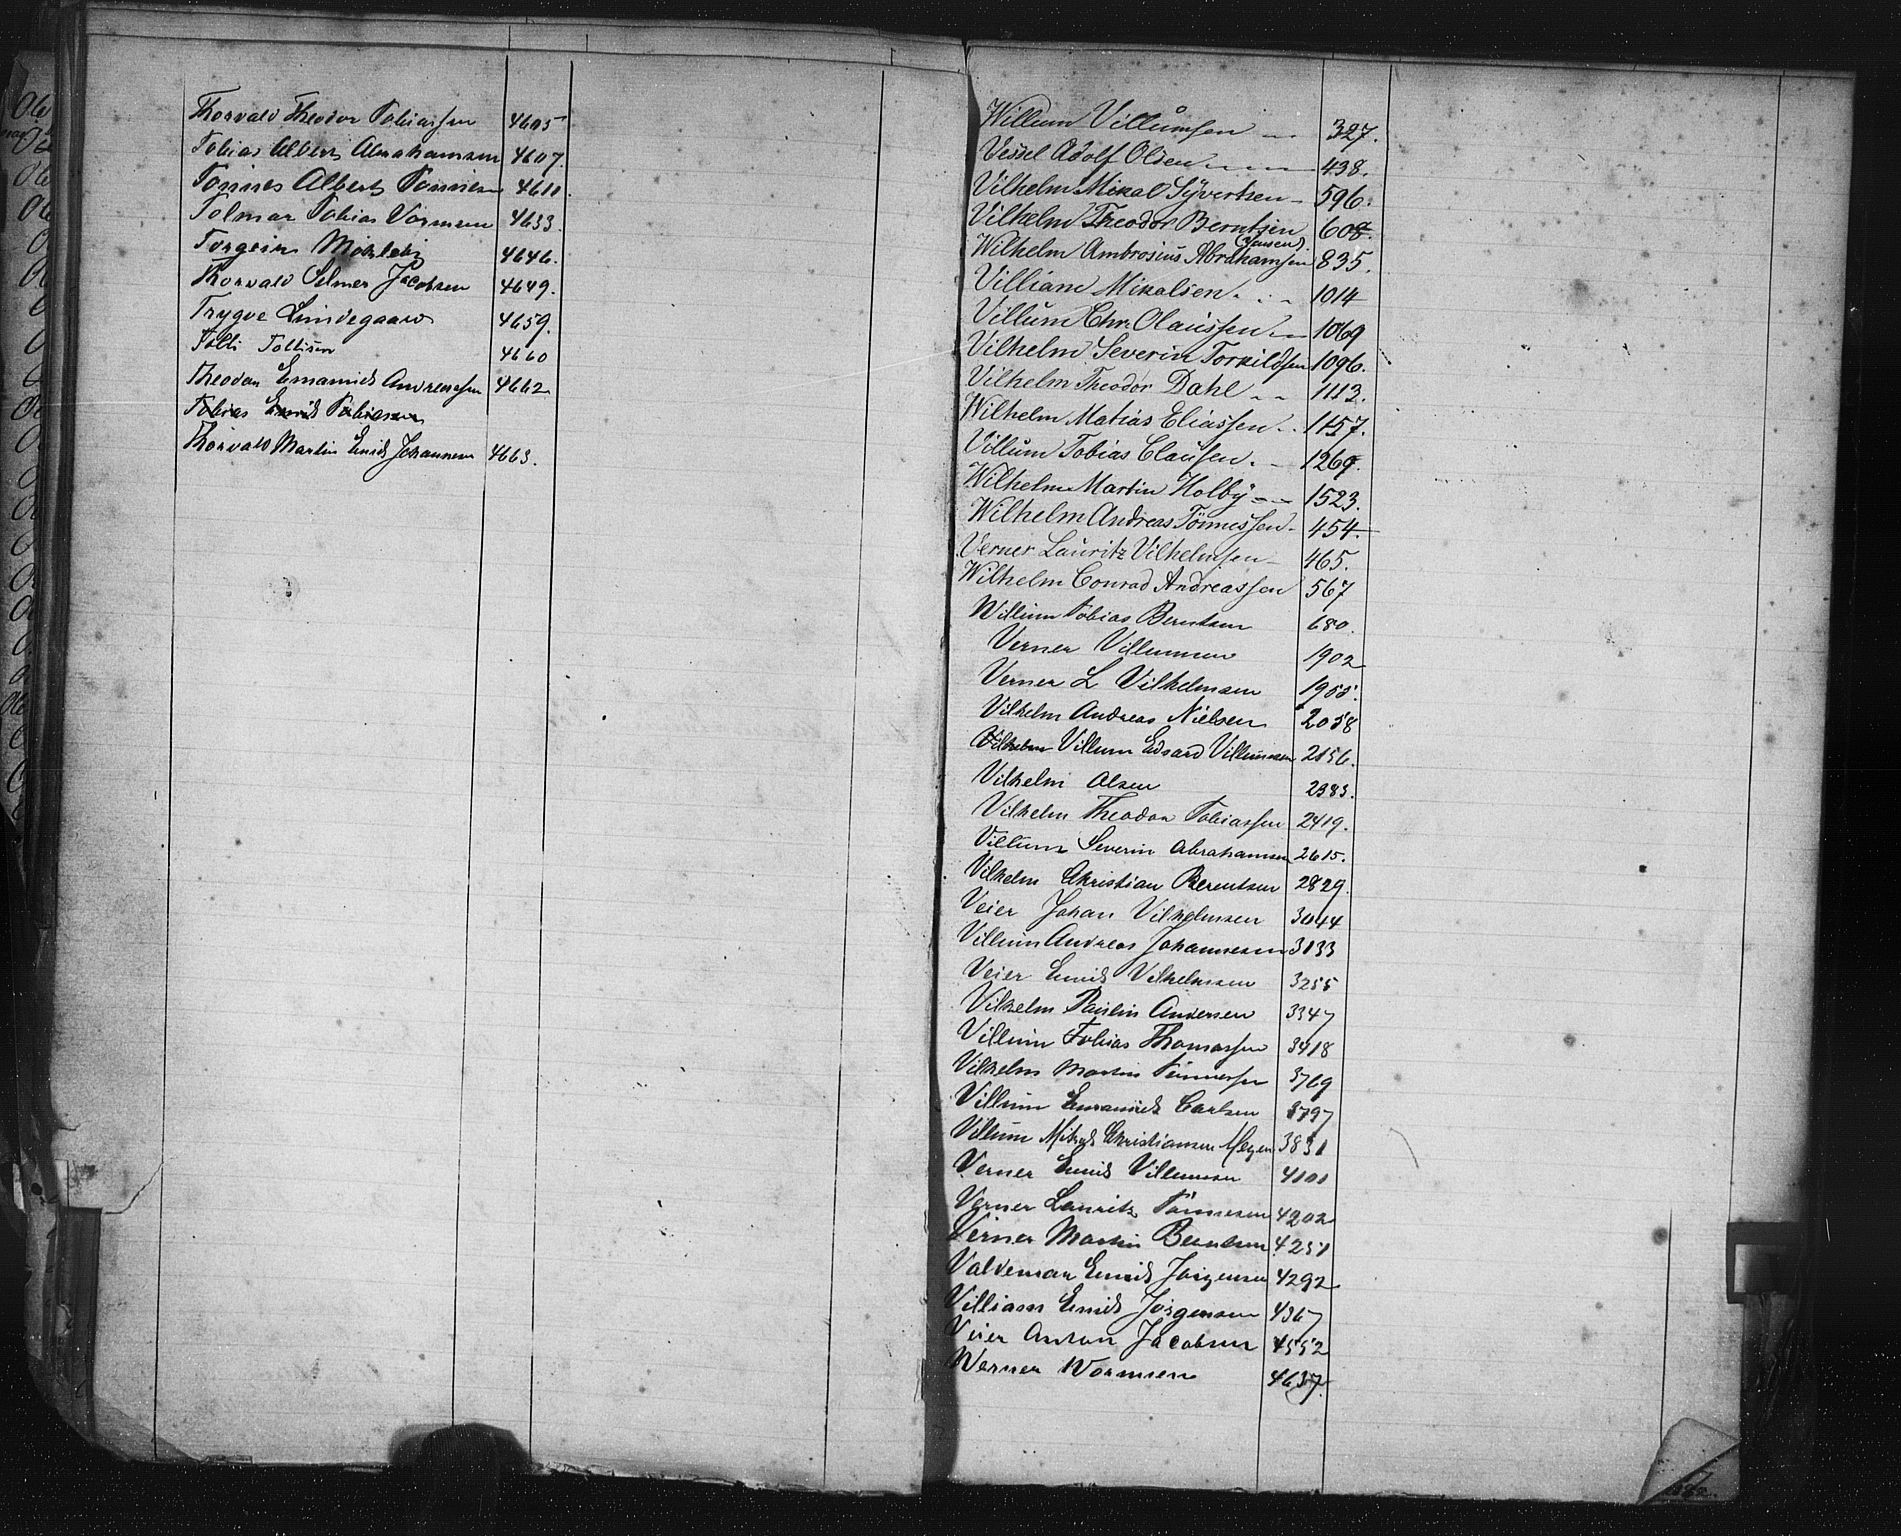 Thorvald Theodor Tobiassen 4605
Tobias Albert Abrahamsen 4607.
Tønnes Albert Tønnesen 4611.
Tolmar Tobias Vormsen 4633.
Torgeir 4646.
Thorvald Selmer Jacobsen 4649.
Trygve Lundegaard 4659.
Tolli Tollisen 4660
Theodor Emanuel Andreassen 4662
Tobias Emil Tobiasen
Thorvald Martin Emil Johannesen 4663.
Willum Villumsen 327.
Vessel Adolf Olsen 438.
Vilhelm Mikal Syvertsen 596.
Vilhelm Theodor Berntsen 608.
(Jansen)
Wilhelm Ambrosius Abrahamsen 835.
Villiam Mikalsen 1014
Villum Chr. Olaussen 1069
Vilhelm Severin Torkildsen 1096.
Vilhelm Theodor Dahl 1112.
Wilhelm Matias Eliassen 1157.
Villum Tobias Clausen 1269.
Wilhelm Martin Holby 1523.
Wilhelm Andreas Tönnessen 454.
Verner Lauritz Vilhelmsen 465.
Wilhelm Conrad Andreassen 567
Willum Tobias Berntsen 680.
Verner Villumsen 1902
Verner L Vilhelmsen 1955.
Vilhelm Andreas Nielsen 2058
Vilhelm Villum Edvard Villumsen 2156.
Vilhelm Olsen 2383.
Vilhelm Theodor Tobiassen 2419.
Villum Severin Abrahamsen 2615.
Vilhelm Christian Berentsen 2829.
Veier Johan Vilhelmsen 3044
Villum Andreas Johannesen 3133
Veier Emil Vilhelmsen 3255
Vilhelm Paulin Andersen 3347
Villum Tobias Thomassen 3418
Vilhelm Martin Tønnessen 3769
Villum Emanuel Carlsen 3797
Villum Mikal Christiansen Meyer 3831
Verner Emil Villumsen 4101
Verner Lauritz Tønnesen 4202
Verner Martin Berntsen 4251
Valdemar Emil Jørgensen 4292
Villiam Emil Jørgensen 4367
Veier Anton Jacobsen 4552
Werner Wormsen 4637.